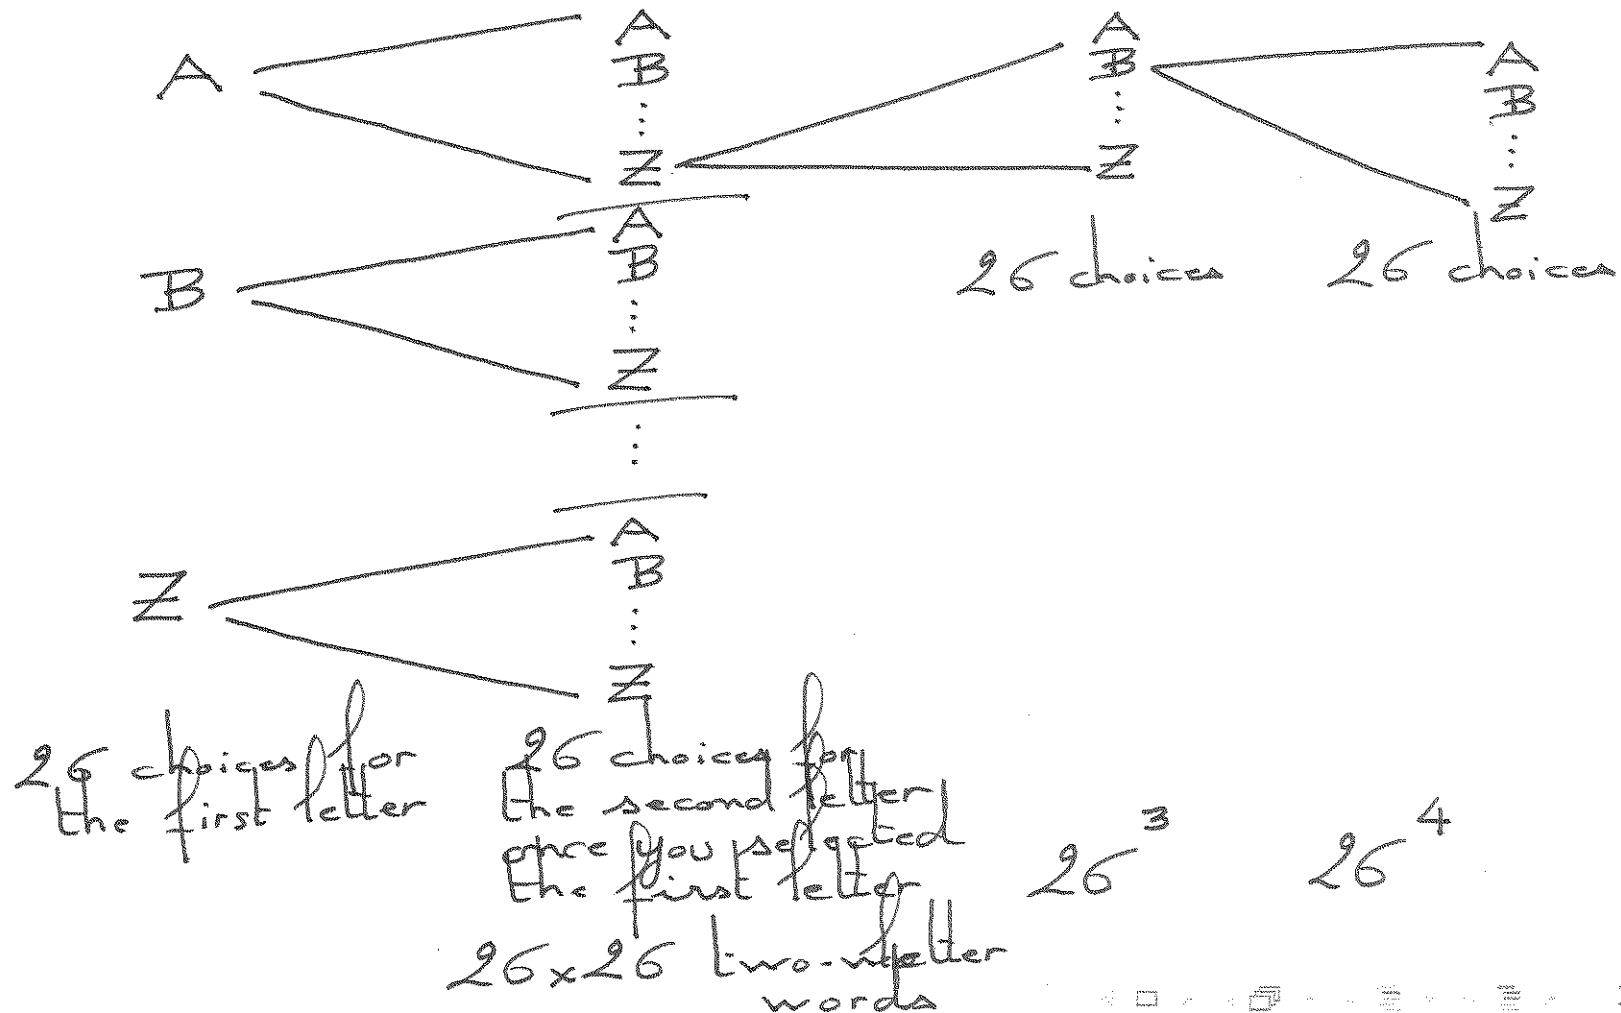 A
A
B
⋮
Z
A
B
⋮
Z
A
B
⋮
Z
B
A
B
⋮
Z
⋮
Z
A
B
⋮
Z
26 choices
26 choices
26 choices for
the first letter
26 choices for
the second letter
once you selected
the first letter
26×26 two-letter
words
26³
26⁴